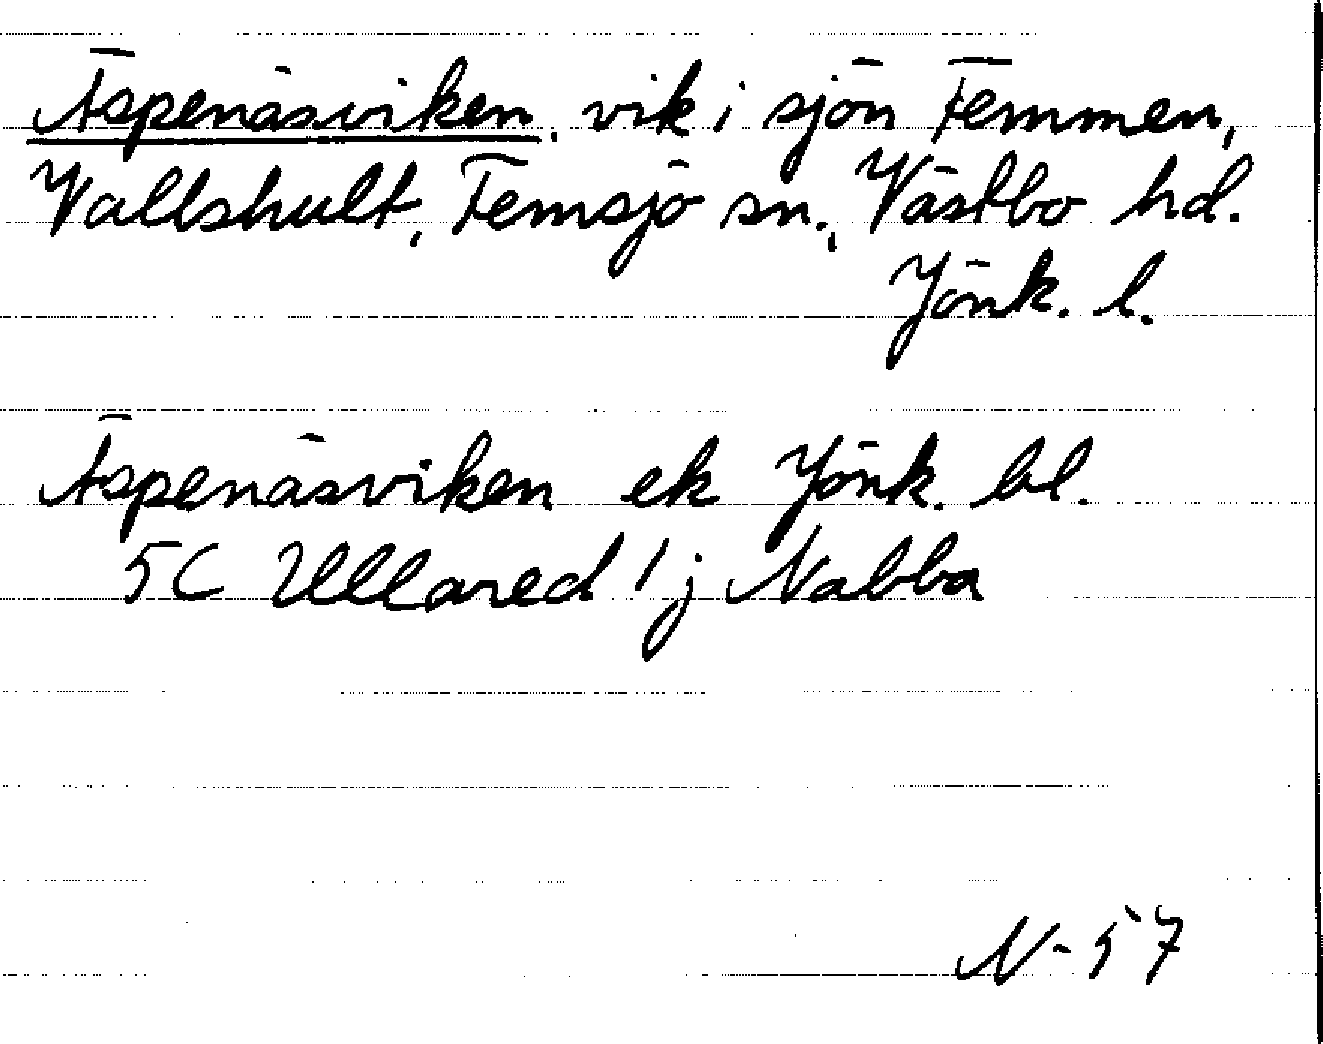 Äspenäsviken, vik i sjön Femmen,
Vallshult, Femsjö sn., Västbo hd.
Jönk. l.
Äspenäsviken ek Jönk. bl.
5C Ullared 1j Nabba
N-57